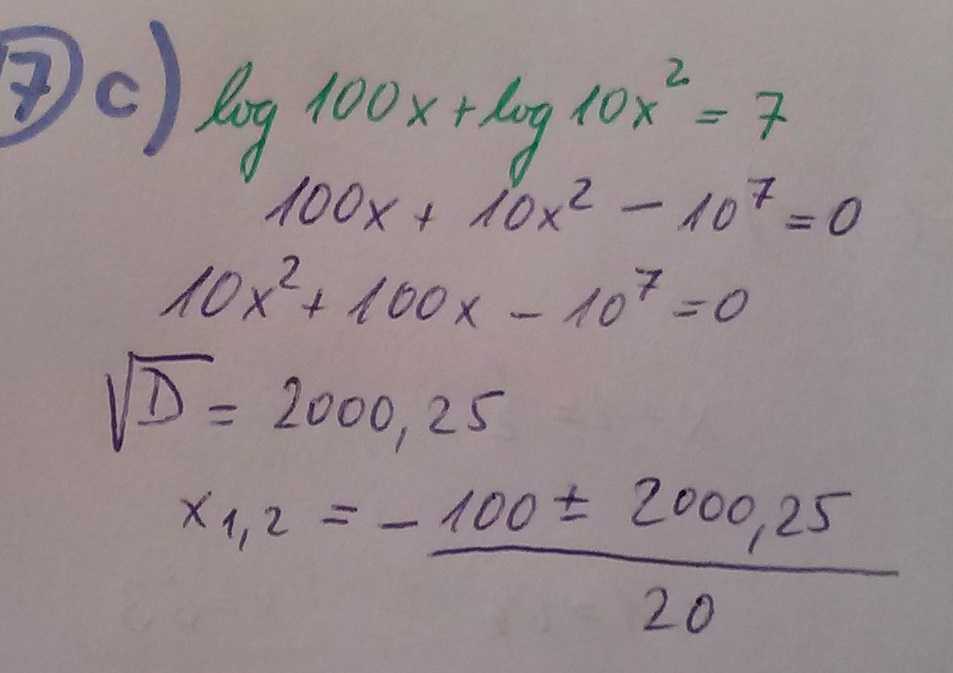 7 c) log 100x + log 10x² = 7
100x + 10x² - 10⁷ = 0
10x² + 100x - 10⁷ = 0
√D = 2000,25
x₁,₂ = -100 ± 2000,25
20